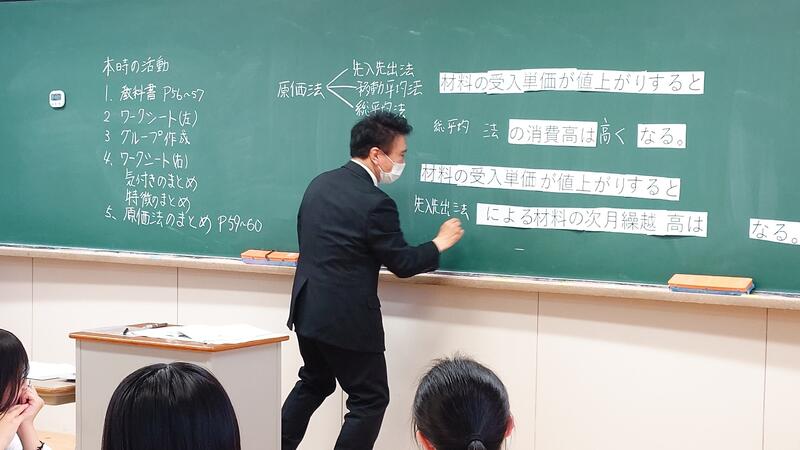 本時の活動
1. 教科書 P56~57
2 ワークシート(左)
3 グループ作成
4. ワークシート(右)
気付きのまとめ
特徴のまとめ
5. 原価法のまとめ P59~60
原価法
先入先出法
移動平均法
総平均法
材料の受入単価が値上がりすると
総平均 法 の消費高は 高く なる。
材料の受入単価が値上がりすると
先入先出法 による材料の次月繰越 高は なる。